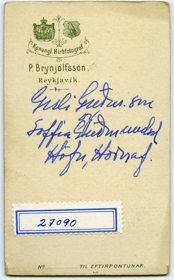 Konungl. Hirðfotograf
P. Brynjólfsson
Reykjavík.
Gísli Guðm. son
Soffía Guðmundsd
Höfn, Hornaf.
27090
No
TIL EFTIRPÖNTUNAR.